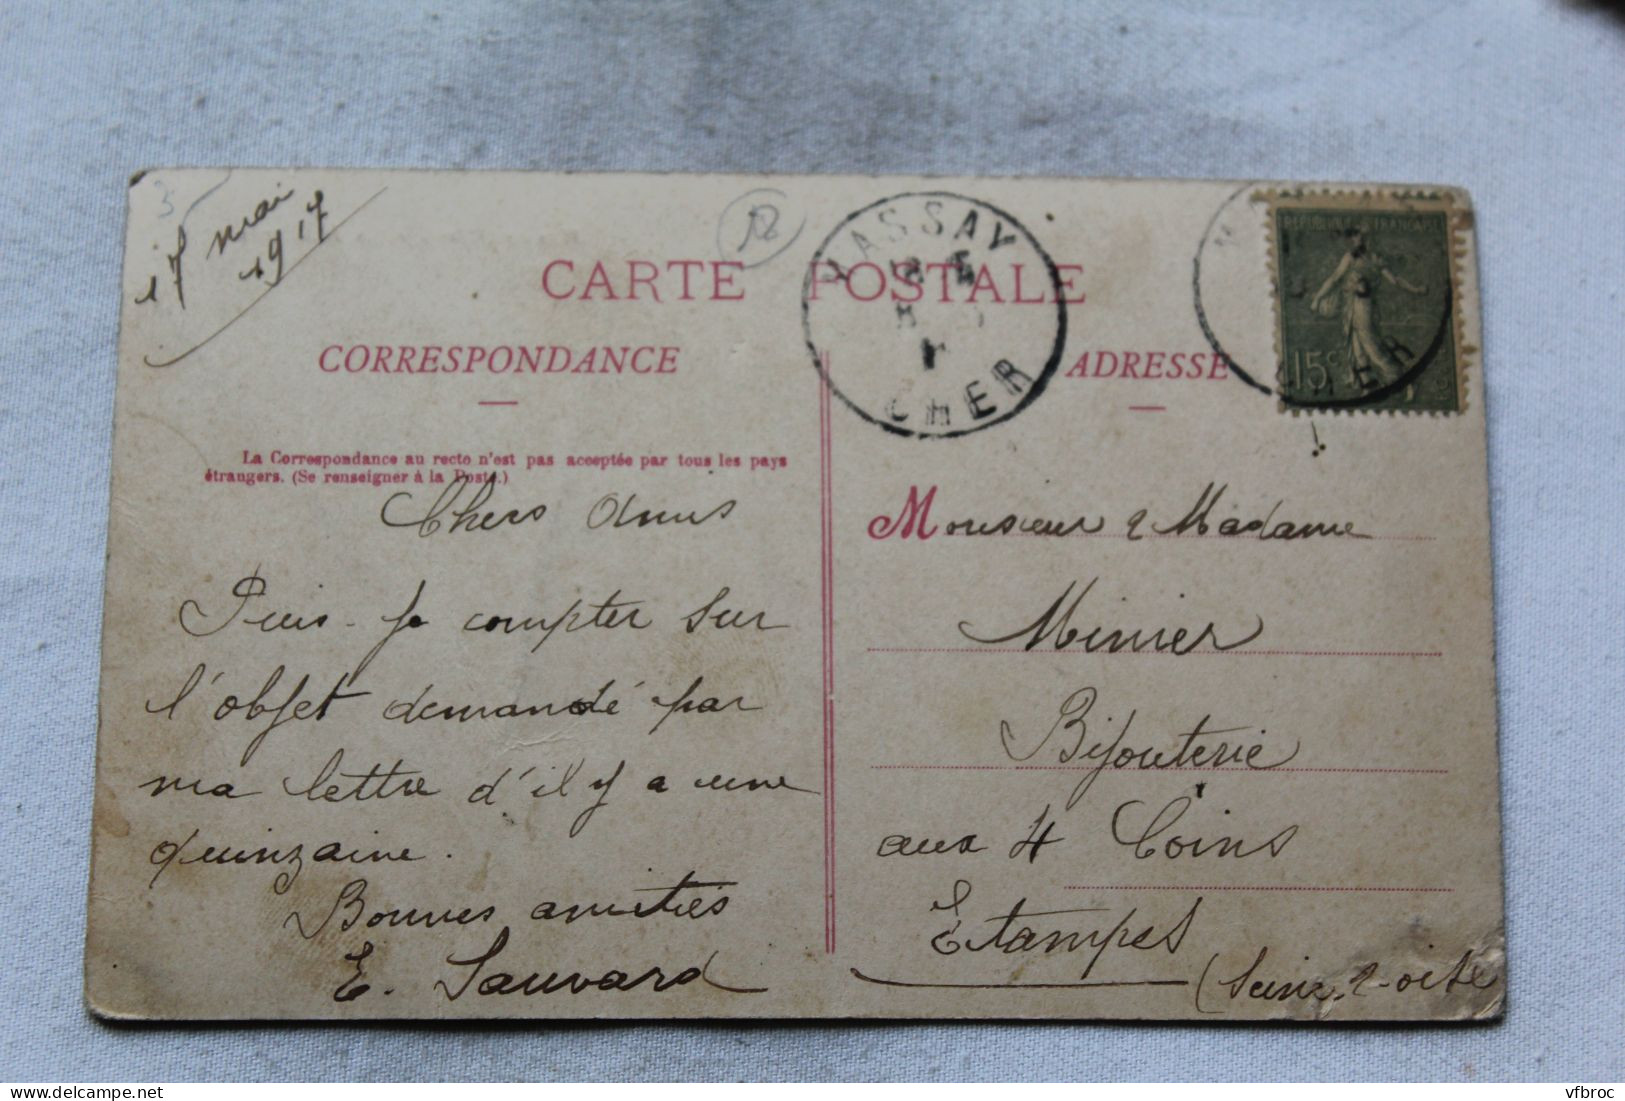 3
17 mai
1917
12
CARTE POSTALE
VASSAY
CHER
CHER
REPUBLIQUE FRANÇAISE
15c
CORRESPONDANCE
ADRESSE
La Correspondance au recto n'est pas acceptée par tous les pays
étrangers. (Se renseigner à la Poste.)
Chers Amis
Puis-je compter sur
l'objet demandé par
ma lettre d'il y a une
quinzaine.
Bonnes amitiés
E. Sauvard
Monsieur & Madame
Minier
Bijouterie
aux 4 Coins
Etampes
(Seine-&-oise
vfbroc